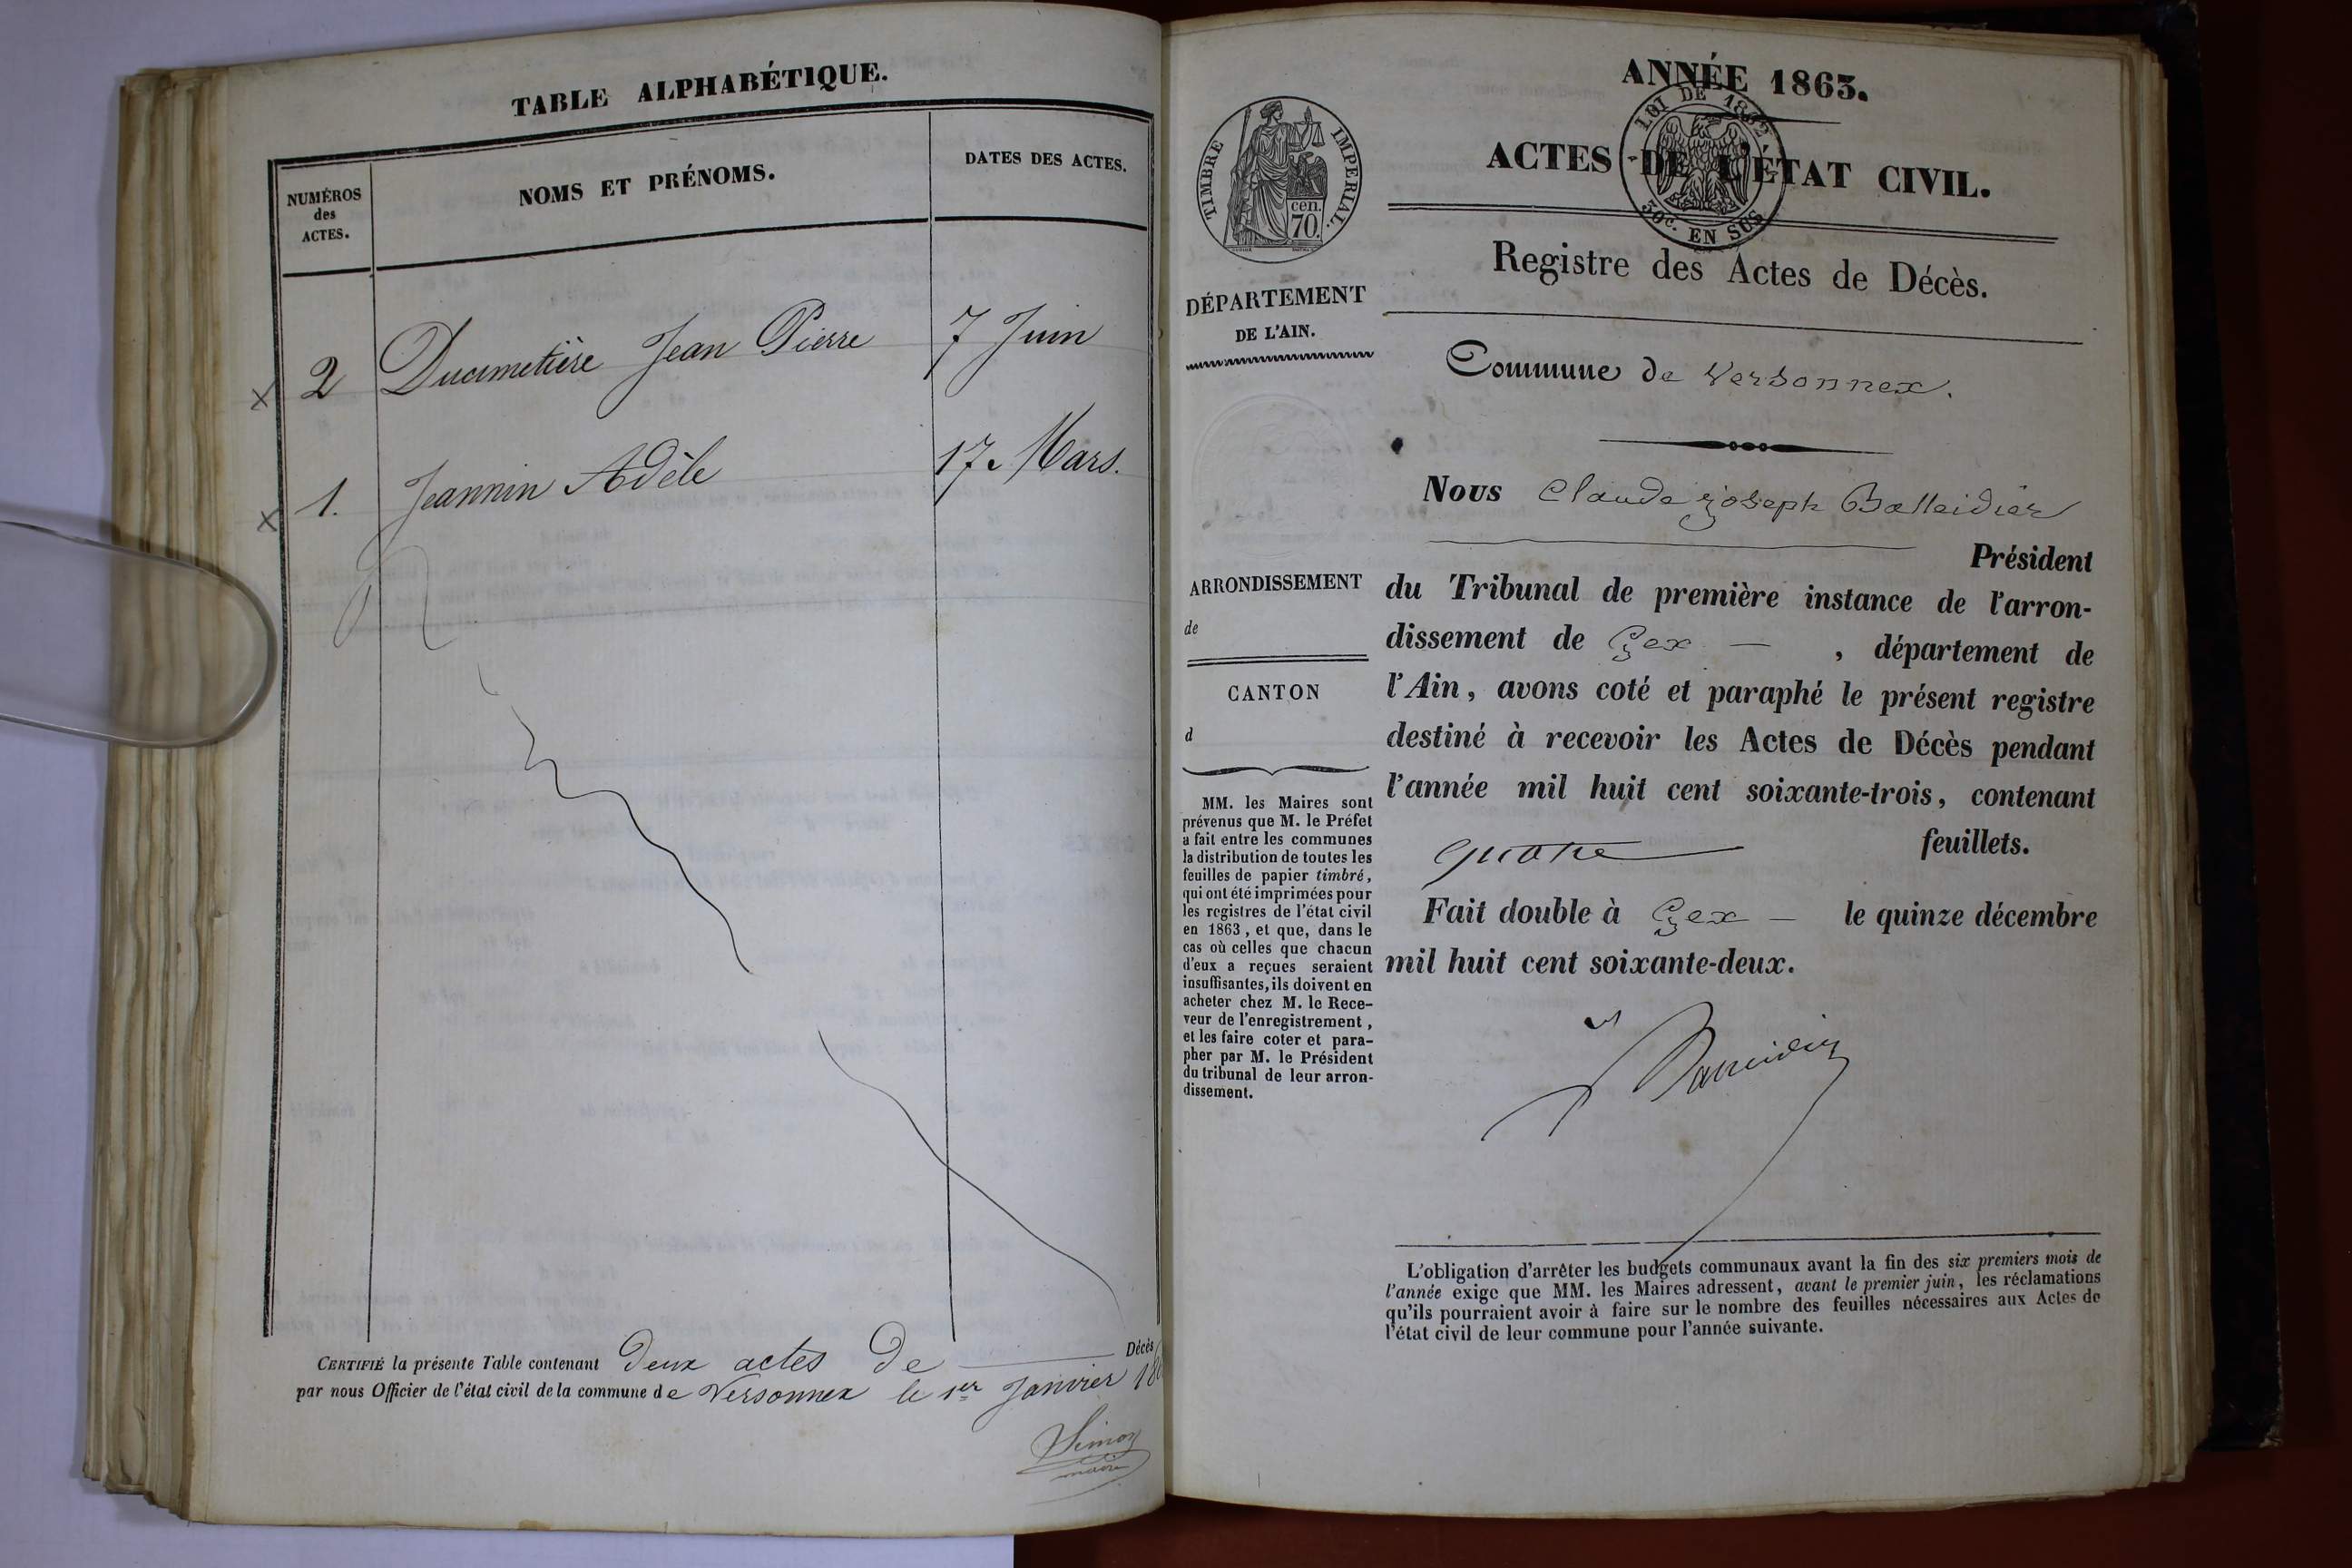 TABLE ALPHABÉTIQUE.
NUMÉROS
des
ACTES.
NOMS ET PRÉNOMS.
DATES DES ACTES.
2 Ducimetière Jean Pierre 7 Juin
1. Jeannin Adèle 17. Mars.
CERTIFIÉ la présente Table contenant deux actes de Décès
par nous Officier de l'état civil de la commune de Versonnex le 1er Janvier
Simon
maire
ANNÉE 1863.
ACTES DE L'ÉTAT CIVIL.
LOI DE 1862
50c. EN SUS
TIMBRE IMPERIAL.
cen.
70.
Registre des Actes de Décès.
DÉPARTEMENT
DE L'AIN.
Commune de Versonnex.
Nous Claude joseph Balleidier
Président
ARRONDISSEMENT
de
CANTON
d
du Tribunal de première instance de l'arron-
dissement de Gex — , département de
l'Ain, avons coté et paraphé le présent registre
destiné à recevoir les Actes de Décès pendant
l'année mil huit cent soixante-trois, contenant
quatre feuillets.
Fait double à Gex — le quinze décembre
mil huit cent soixante-deux.
MM. les Maires sont
prévenus que M. le Préfet
a fait entre les communes
la distribution de toutes les
feuilles de papier timbré,
qui ont été imprimées pour
les registres de l'état civil
en 1863, et que, dans le
cas où celles que chacun
d'eux a reçues seraient
insuffisantes, ils doivent en
acheter chez M. le Rece-
veur de l'enregistrement,
et les faire coter et para-
pher par M. le Président
du tribunal de leur arron-
dissement.
L'obligation d'arrêter les budgets communaux avant la fin des six premiers mois de
l'année exige que MM. les Maires adressent, avant le premier juin, les réclamations
qu'ils pourraient avoir à faire sur le nombre des feuilles nécessaires aux Actes de
l'état civil de leur commune pour l'année suivante.